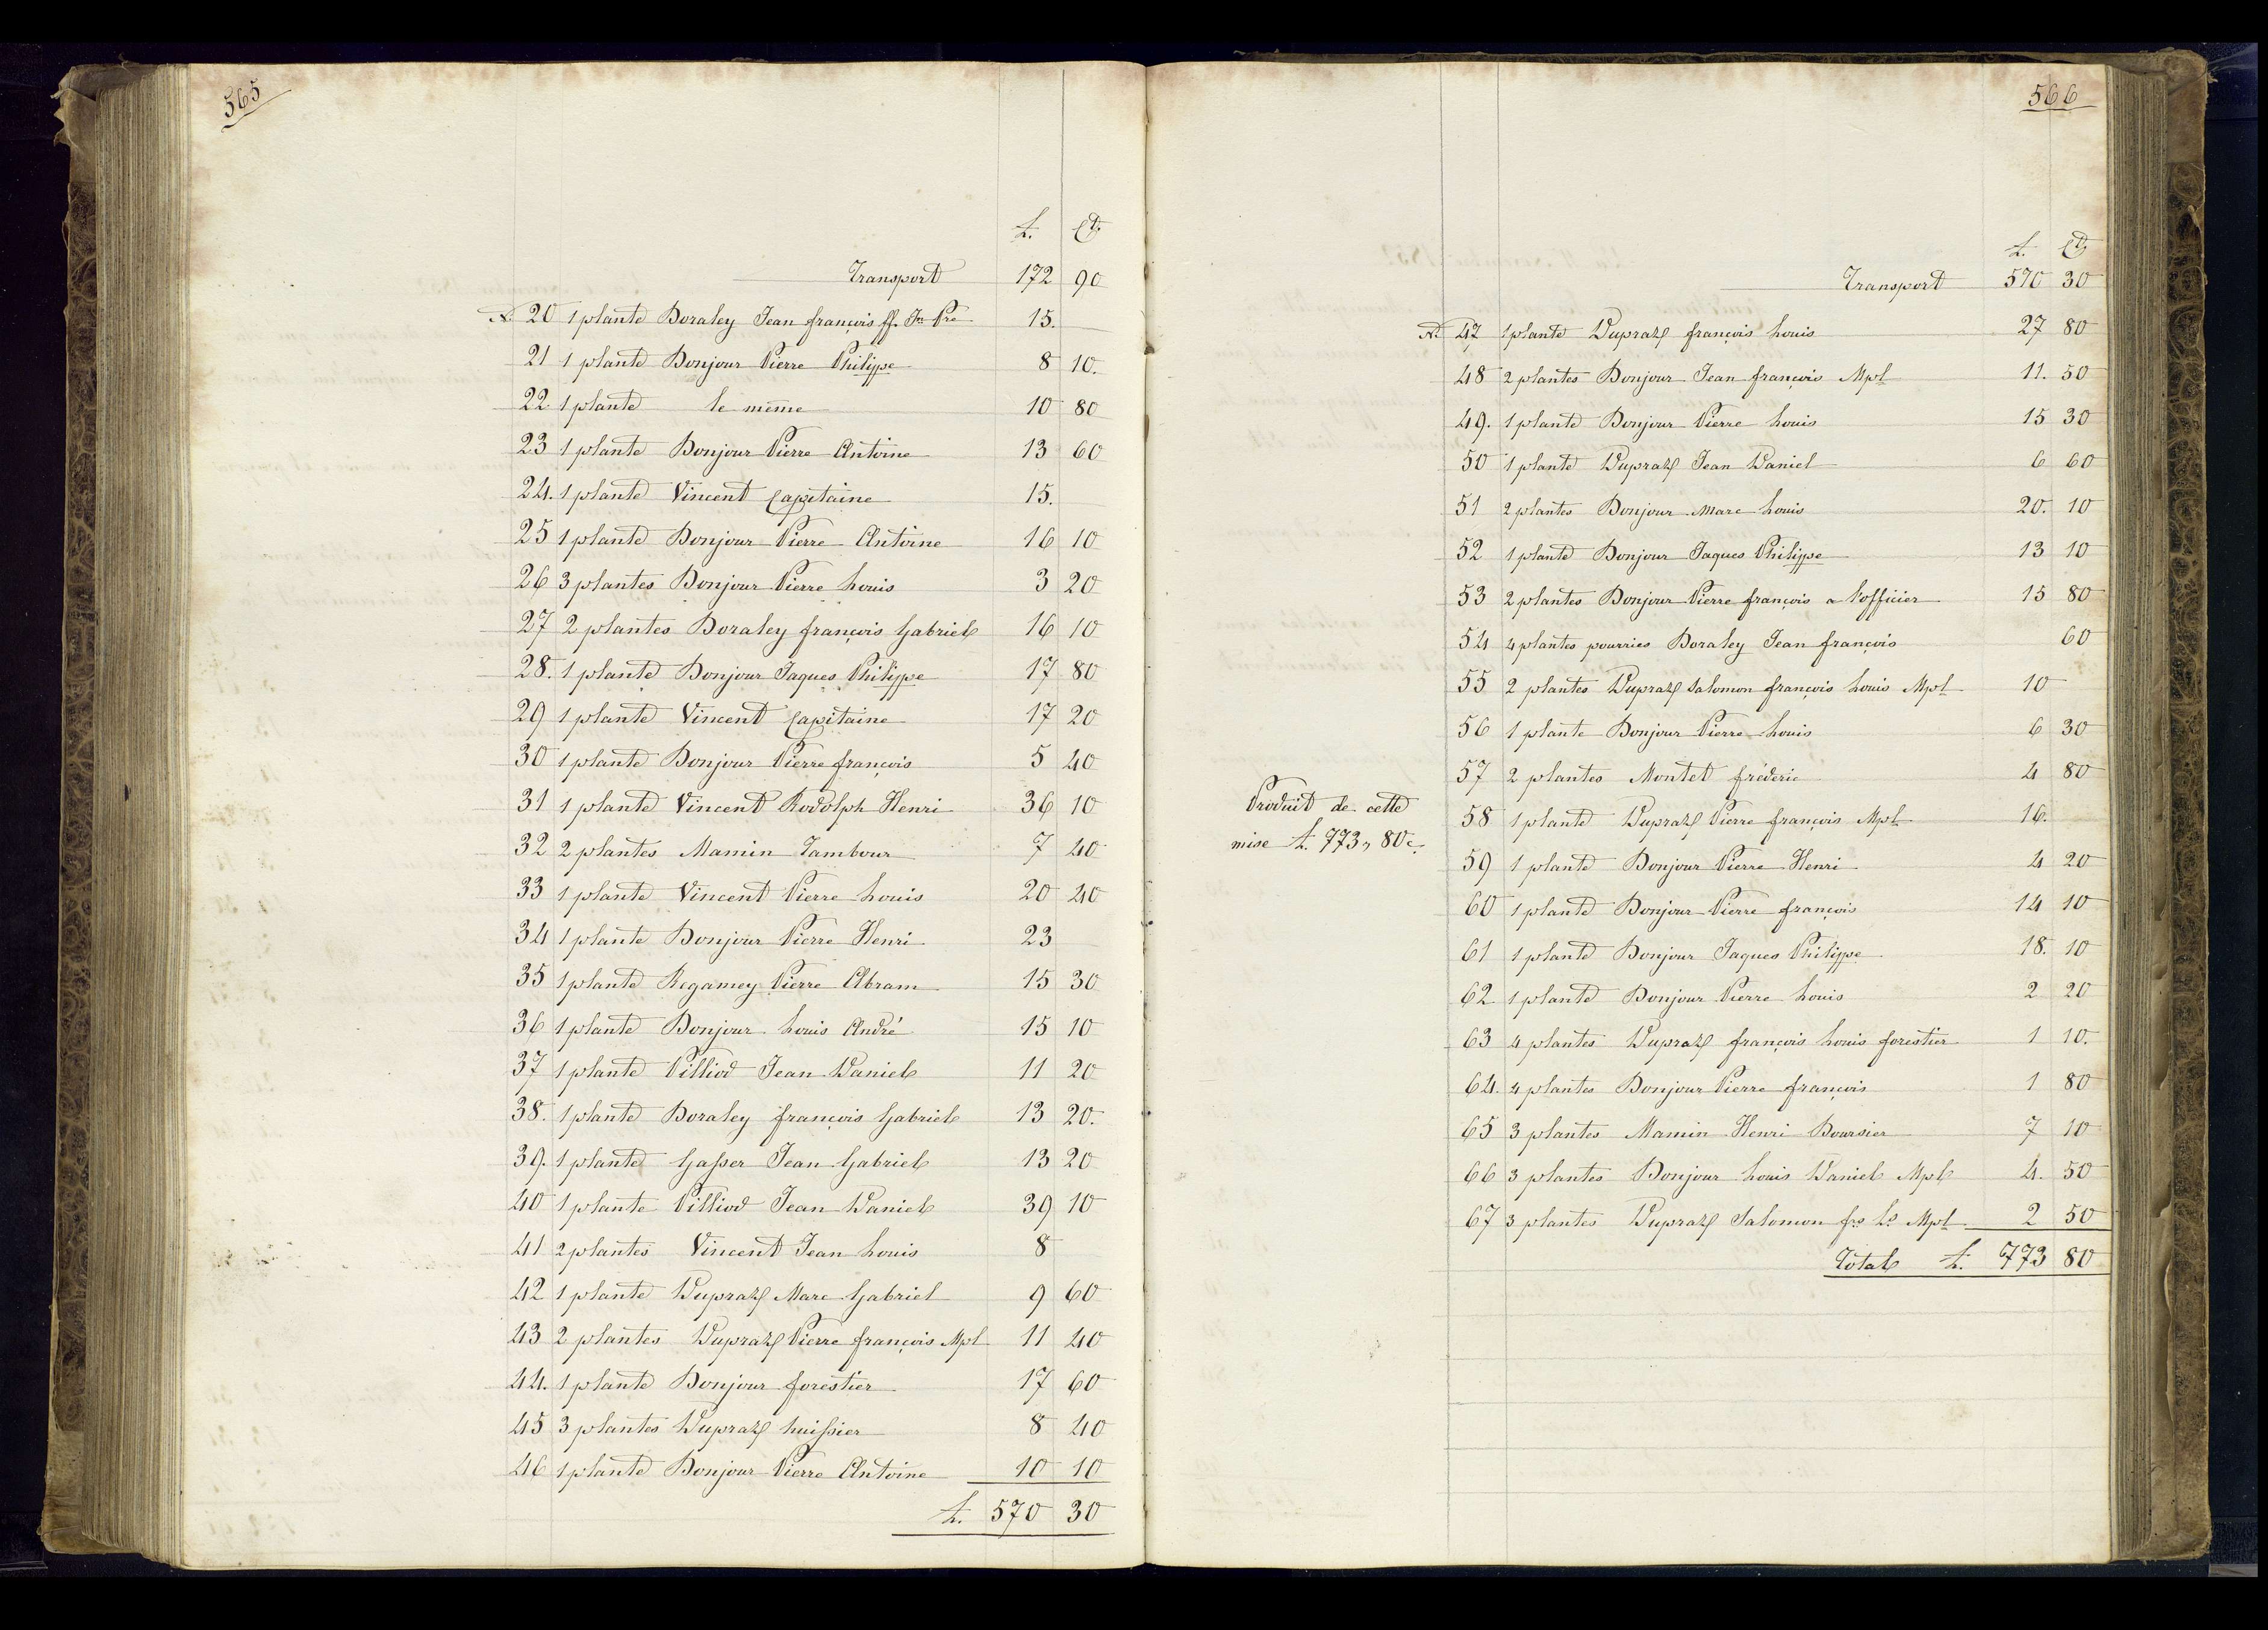 565
f. Ct.
Transport 172 90
N. 20 1 plante Boraley Jean françois ff. Jn Pre 15.
21 1 plante Bonjour Pierre Philippe 8 10.
22 1 plante le même 10 80
23 1 plante Bonjour Pierre Antoine 13 60
24. 1 plante Vincent Capitaine 15.
25 1 plante Bonjour Pierre Antoine 16 10
26 3 plantes Bonjour Pierre Louis 3 20
27 2 plantes Boraley françois Gabriel 16 10
28. 1 plante Bonjour Jaques Philippe 17 80
29 1 plante Vincent Capitaine 17 20
30 1 plante Bonjour Pierre françois 5 40
31 1 plante Vincent Rodolph Henri 36 10
32 2 plantes Mamin Tambour 7 40
33 1 plante Vincent Pierre Louis 20 40
34 1 plante Bonjour Pierre Henri 23
35 1 plante Regamey Pierre Abram 15 30
36 1 plante Bonjour Louis André 15 10
37 1 plante Villiod Jean Daniel 11 20
38. 1 plante Boraley françois Gabriel 13 20.
39. 1 plante Gasser Jean Gabriel 13 20
40 1 plante Villiod Jean Daniel 39 10
41 2 plantes Vincent Jean Louis 8
42 1 plante Dupraz Marc Gabriel 9 60
43 2 plantes Dupraz Pierre françois Mpl 11 40
44. 1 plante Bonjour forestier 17 60
45 3 plantes Dupraz huissier 8 40
46 1 plante Bonjour Pierre Antoine 10 10
f. 570 30
566
f. Ct
Transport 570 30
N. 47 1 plante Dupraz françois Louis 27 80
48 2 plantes Bonjour Jean françois Mpl 11. 50
49. 1 plante Bonjour Pierre Louis 15 30
50 1 plante Dupraz Jean Daniel 6 60
51 2 plantes Bonjour Marc Louis 20. 10
52 1 plante Bonjour Jaques Philippe 13 10
53 2 plantes Bonjour Pierre françois a l'officier 15 80
54 4 plantes pourries Boraley Jean françois 60
55 2 plantes Dupraz Salomon françois Louis Mpl 10
56 1 plante Bonjour Pierre Louis 6 30
57 2 plantes Montet fréderic 4 80
Produit de cette
mise f. 773, 80 c.
58 1 plante Dupraz Pierre françois Mpl 16.
59 1 plante Bonjour Pierre Henri 4 20
60 1 plante Bonjour Pierre françois 14 10
61 1 plante Bonjour Jaques Philippe 18. 10
62 1 plante Bonjour Pierre Louis 2 20
63 4 plantes Dupraz françois Louis forestier 1 10.
64. 4 plantes Bonjour Pierre françois 1 80
65 3 plantes Mamin Henri Boursier 7 10
66 3 plantes Bonjour Louis Daniel Mpl 4. 50
67 3 plantes Dupraz Salomon fs Ls Mpl 2 50
Total f. 773 80